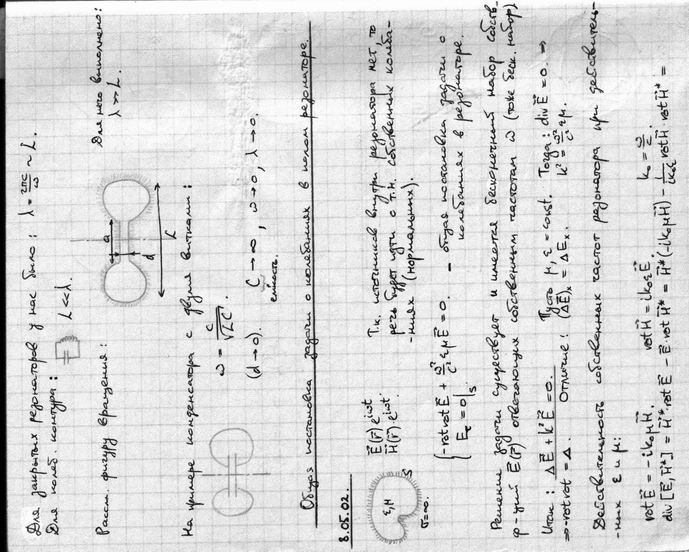 Для закрытых резонаторов у нас было: λ = 2πc/ω ~ L.
Для колеб. контура: L << λ.
Рассм. фигуру вращения:
a
d
L
Для него выполнено:
λ >> L.
На примере конденсатора с двумя витками:
ω = c/√(LC)
(d → 0).
C → ∞, ω → 0, λ → 0.
ёмкость.
Общая постановка задачи о колебаниях в полом резонаторе.
8.05.02.
ε, μ
S
σ=∞.
E⃗(r⃗) e^{iωt}
H⃗(r⃗) e^{iωt}
Т.к. источников внутри резонатора нет, то
речь будет идти о т.н. собственных колеба-
ниях (нормальных).
{ -rot rot E⃗ + ω²/c² εμ E⃗ = 0.
E_τ = 0|_S
- общая постановка задачи о
колебаниях в резонаторе.
Решение задачи существует и имеется бесконечный набор собств.
ф-ций E⃗(r⃗) отвечающих собственным частотам ω (тоже беск. набор)
Итак: ΔE⃗ + k²E⃗ = 0. Пусть μ, ε = const. Тогда: div E⃗ = 0. ⇒
⇒ -rot rot = Δ. Отличие: (ΔE⃗)ₓ = ΔEₓ. k² = ω²/c² εμ.
Действительность собственных частот резонатора при действитель-
ных ε и μ:
rot E⃗ = -ik₀μH⃗. rot H⃗ = ik₀εE⃗. k₀ = ω/c.
div [E⃗, H⃗*] = H⃗* rot E⃗ - E⃗ · rot H⃗* = H⃗*(-ik₀μH⃗) - 1/(ik₀ε) rot H⃗ · rot H⃗* =